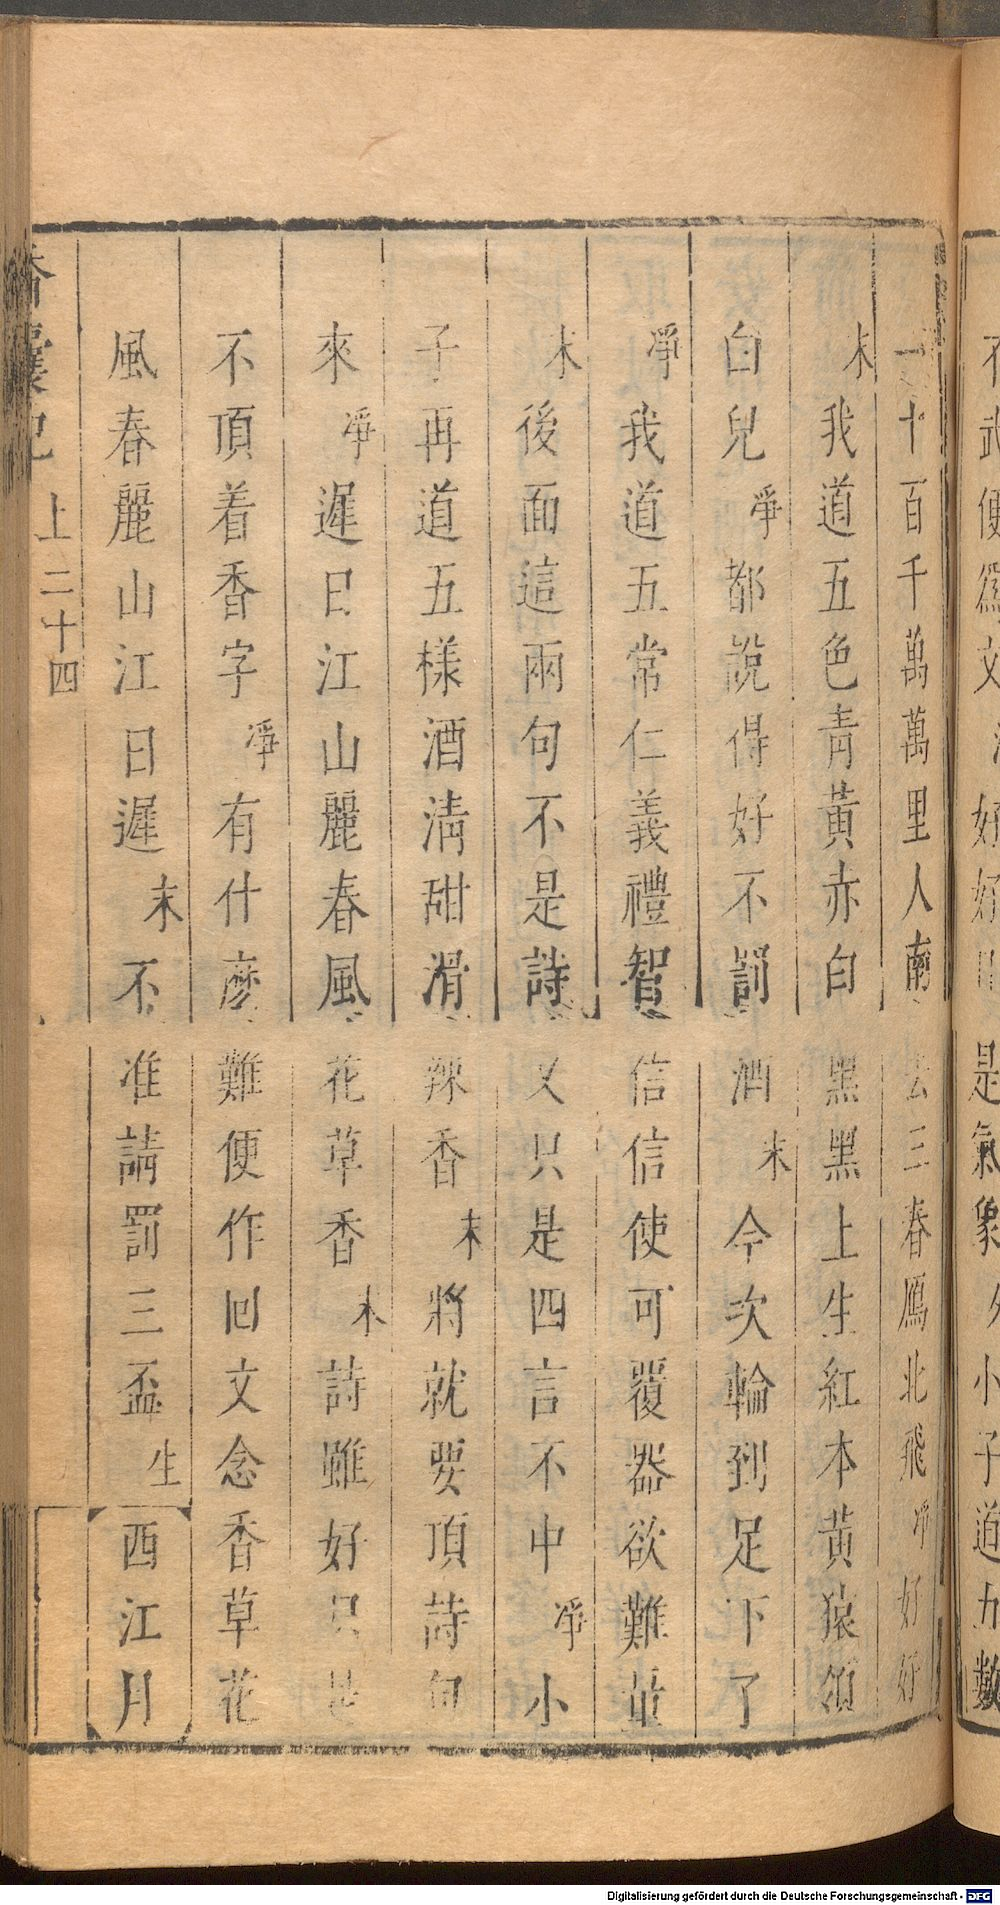 不武便爲文
好好
是氣象
小子道五數
一十百千萬萬里人南去三春鴈北飛凈好好
末我道五色青黃赤白黑黑上生紅本黃猿領
白兒凈都說得好不罰酒末今次輪到足下了
凈我道五常仁義禮智信信使可覆器欲難量
末後面這兩句不是詩又只是四言不中凈小
子再道五樣酒淸甜滑辣香末將就要頂詩句
來凈遲日江山麗春風花草香末詩雖好只是
不頂着香字凈有什麽難便作回文念香草花
風春麗山江日遲末不准請罰三盃生【西江月】
香囊記 上 二十四
Digitalisierung gefördert durch die Deutsche Forschungsgemeinschaft - DFG